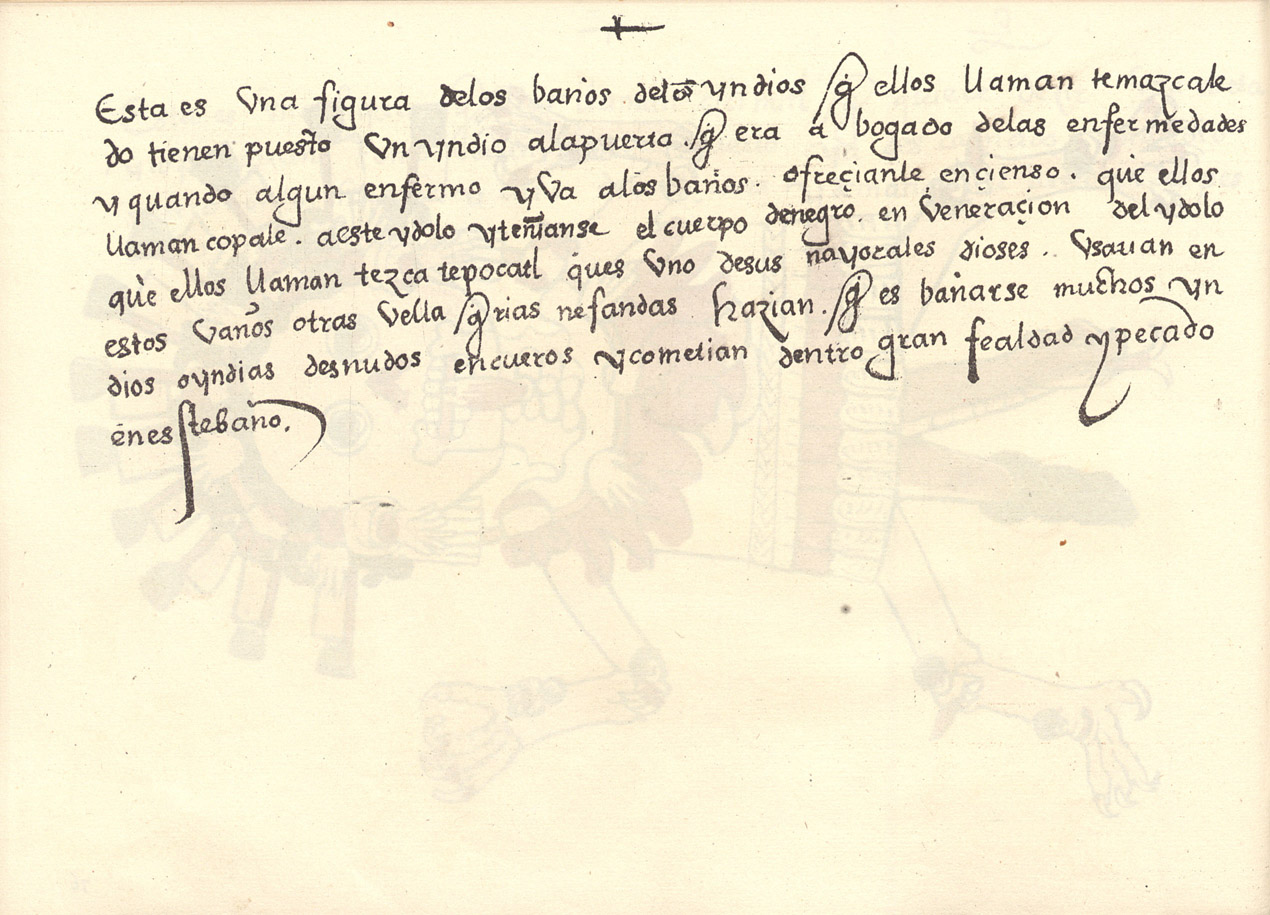 Esta es Una figura delos baños delos yndios q̃ ellos llaman temazcale
do tienen puesto Un yndio ala puerta . q̃ era abogado delas enfermedades
y quando algun enfermo yva alos baños . ofreçianle ençienso . que ellos
llaman copale . aeste ydolo yteñianse el cuerpo denegro . en Veneraçion del ydolo
que ellos llaman tezcatepocatl ques Uno desus mayorales dioses . Usauan en
estos Vaños otras Vella q̃rias nefandas hazian . q̃ es bañarse muchos yn
dios oyndias desnudos encueros ycometian dentro gran fealdad ypecado
enestebaño .